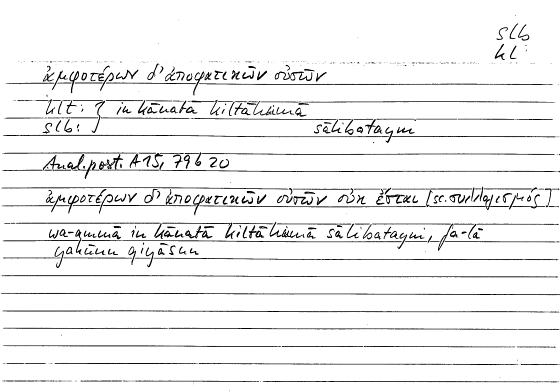 slb
kl:
ἀμφοτέρων δ' ἀποφατικῶν οὐσῶν
klt: } in kānatā kiltāhumā
slb: sālibatayni
Anal. post. A 15, 79 b 20
ἀμφοτέρων δ' ἀποφατικῶν οὐσῶν οὐκ ἔσται [sc. συλλογισμός]
wa-ammā in kānatā kiltāhumā sālibatayni, fa-lā
yakūnu qiyāsun